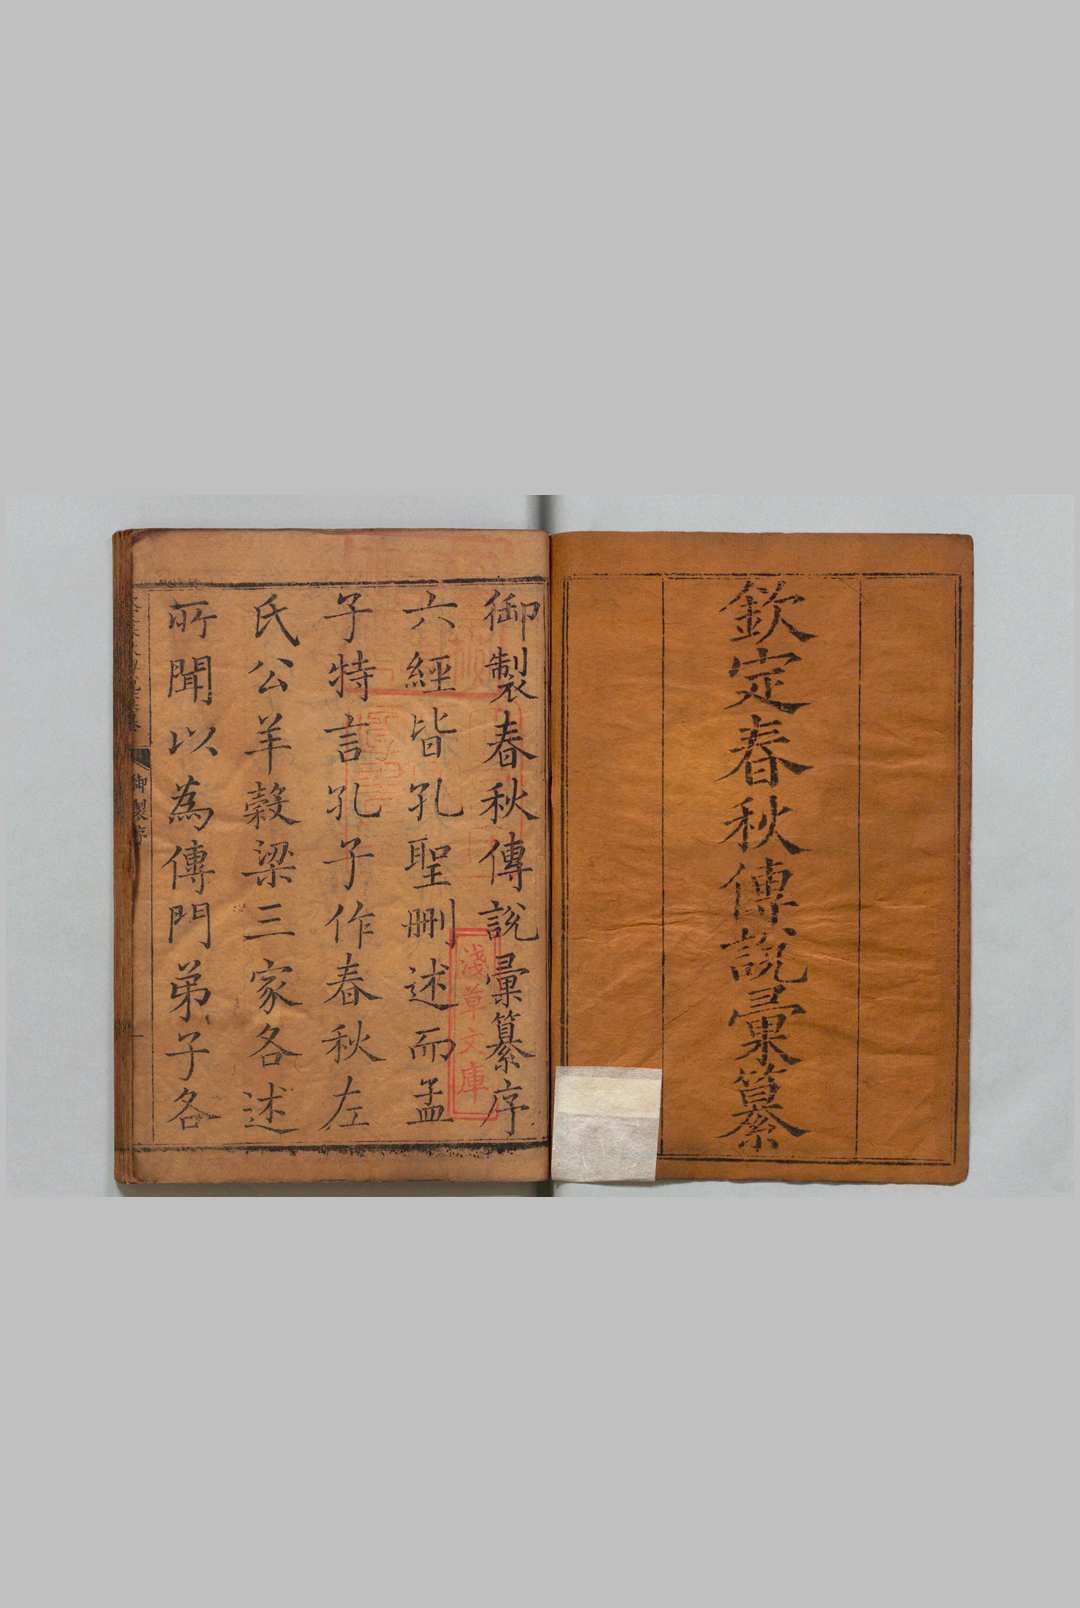 欽定春秋傳說彙纂
御製春秋傳說彙纂序
六經皆孔聖刪述而孟
子特言孔子作春秋左
氏公羊穀梁三家各述
所聞以為傳門弟子各
淺草文庫
御製序